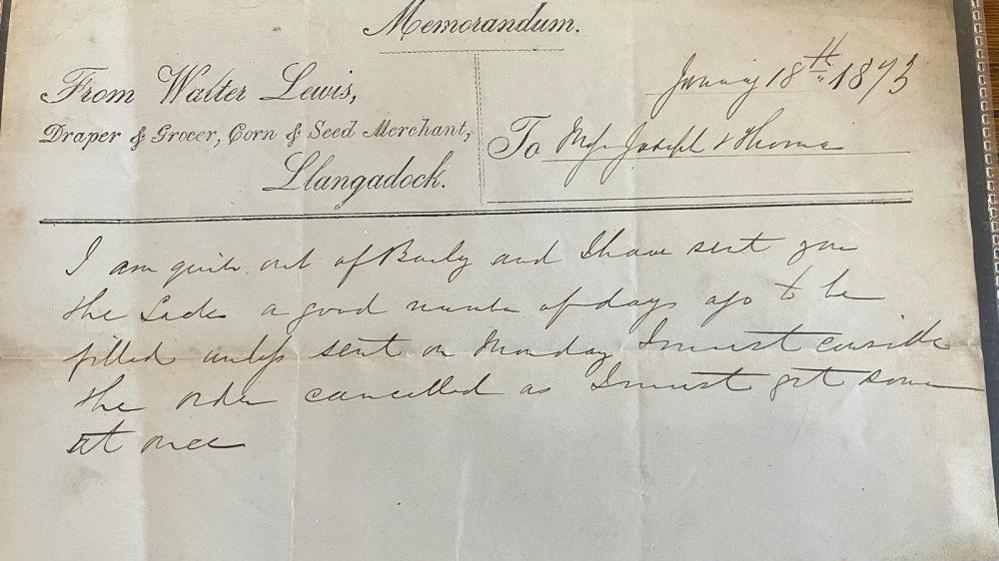 Memorandum.
From Walter Lewis,
Draper & Grocer, Corn & Seed Merchant,
Llangadock.
January 18th 1873
To Messrs Joseph & Thomas
I am quite out of Barley and I have sent you
the Sacks a good number of days ago to be
filled unless sent on Monday I must consider
the order cancelled as I must get some
at once